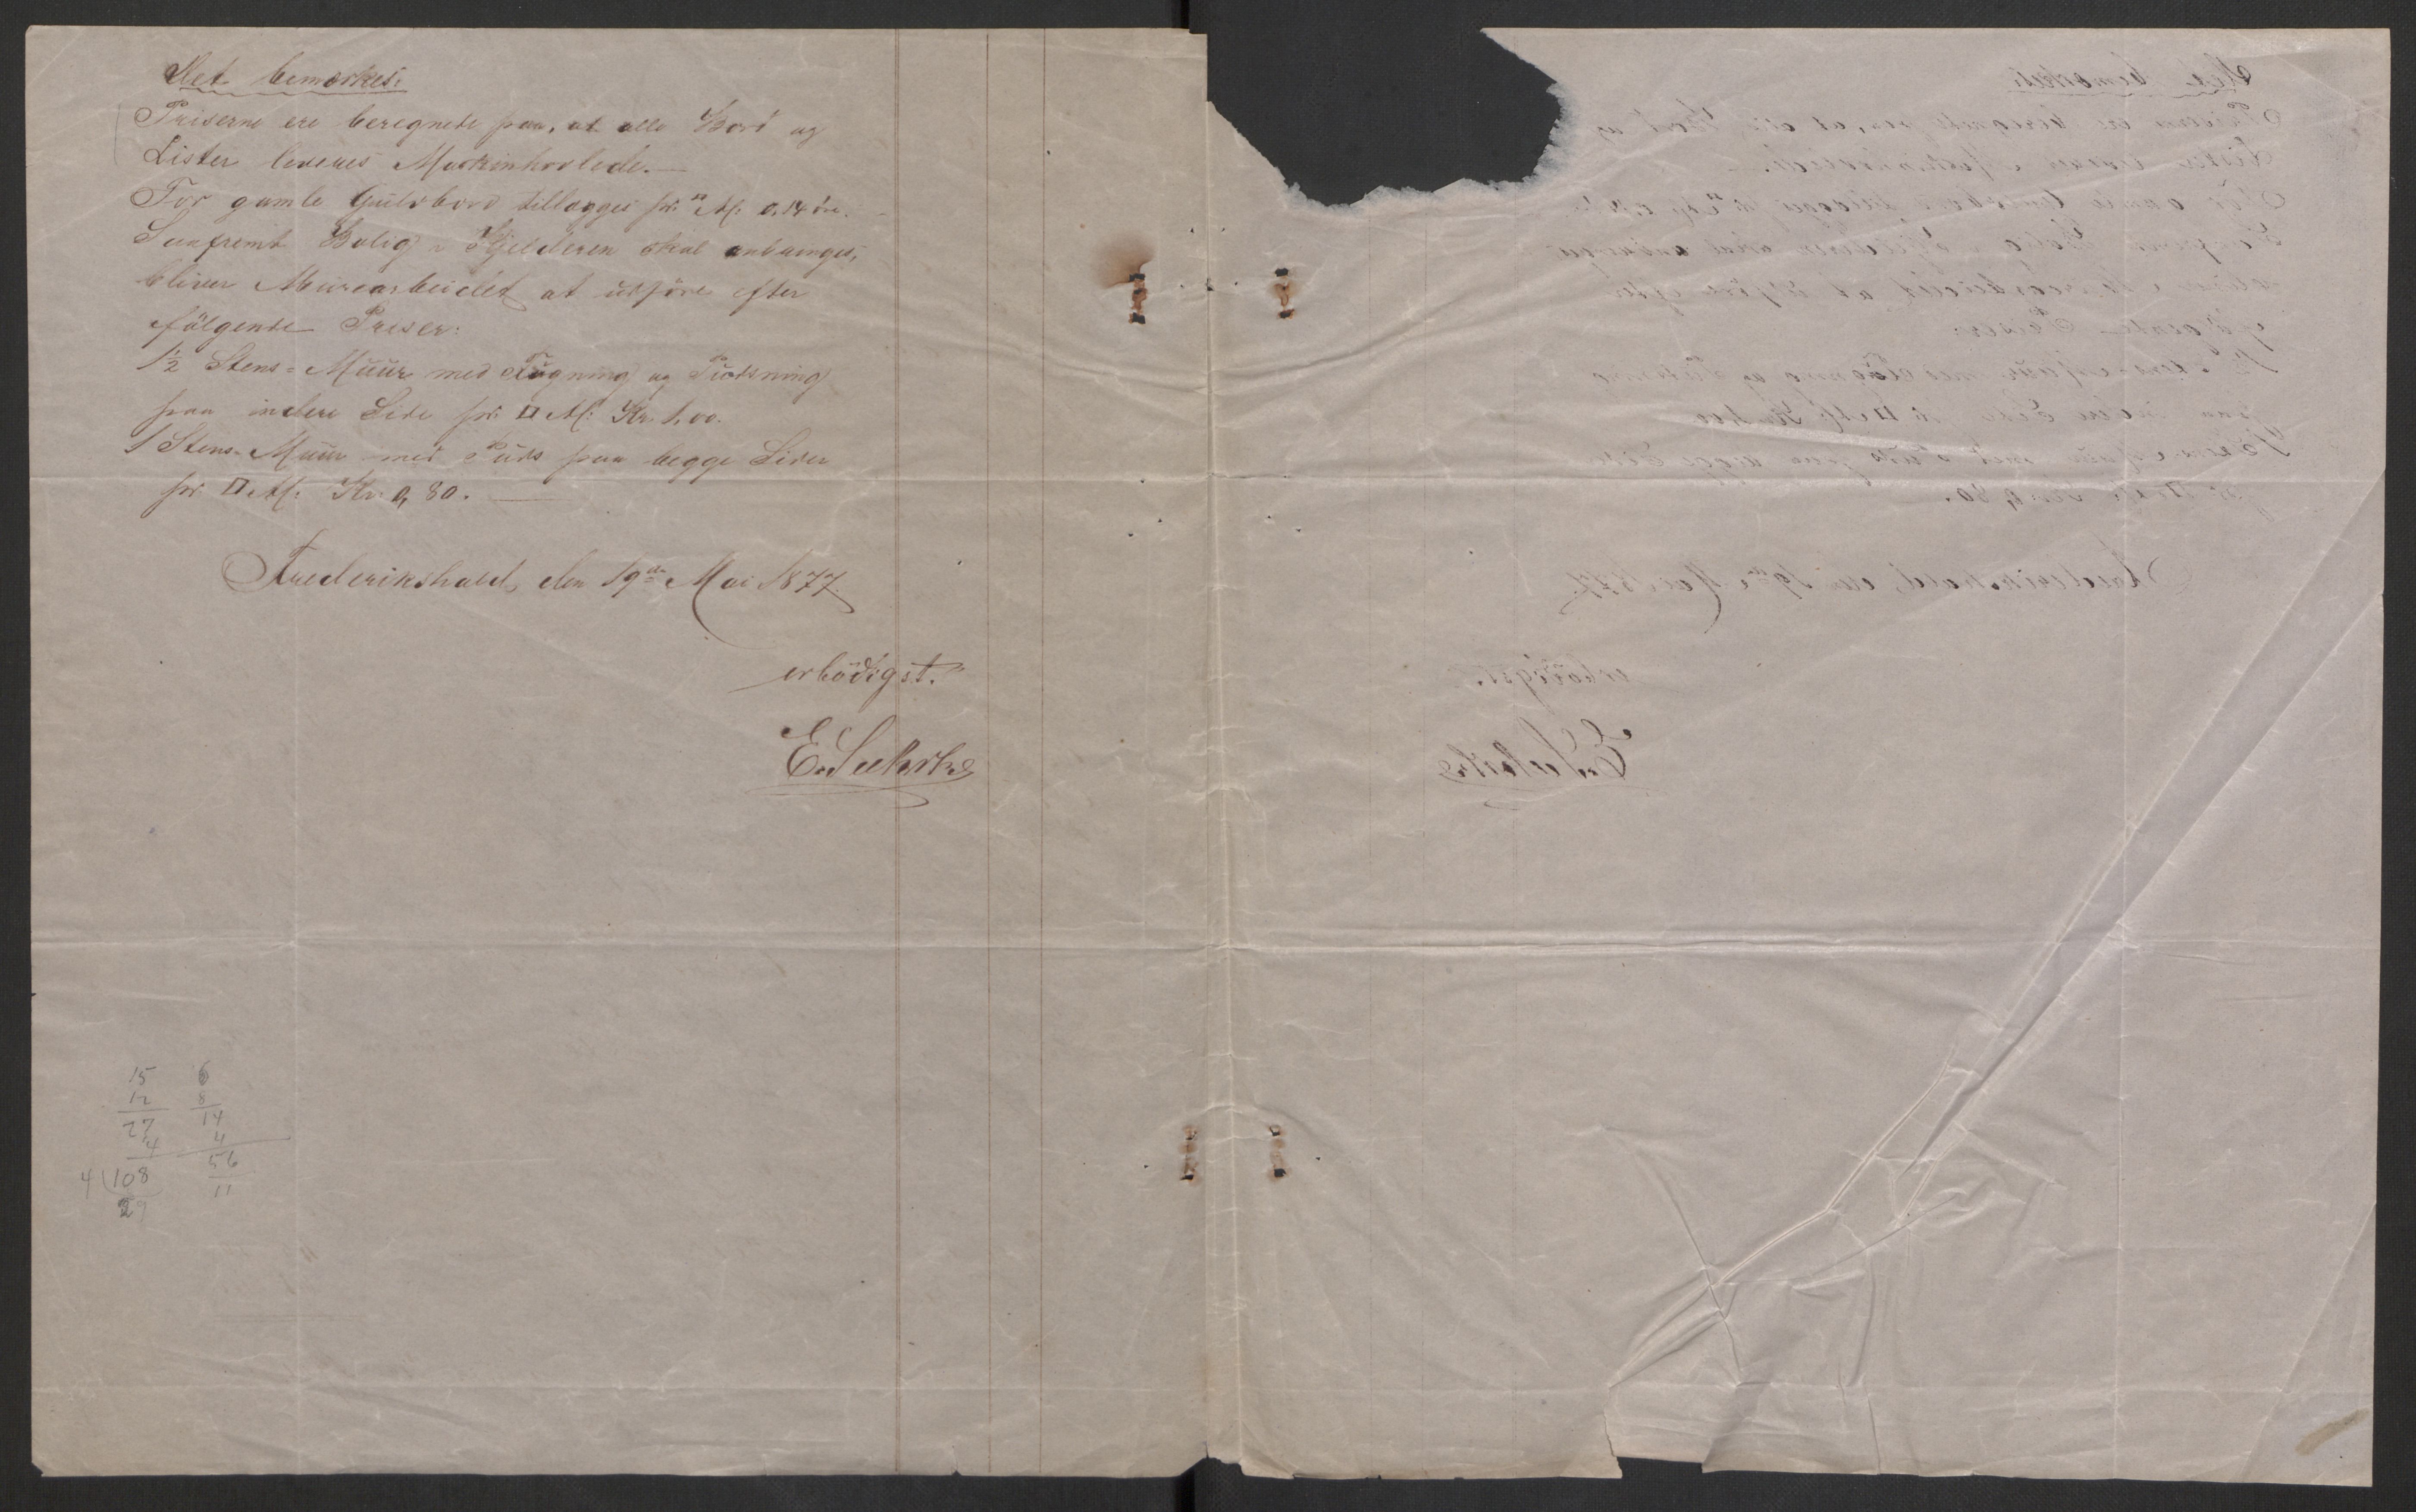 Det bemærkes:
Priserne ere beregnede paa, at alle Bord og
Lister leveres Maskinhovlede.
For gamle Gulvbord tillægges pr. □ M: 0,14 øre.
Saafremt Bolig i Kjelderen skal anbringes,
bliver Muurarbeidet at udföre efter
fölgende Priser:
1½ Stens=Muur med Fugning og Pudsning
paa indre Side pr. □ M: Kr. 1,00.
1 Stens=Muur med Puds paa begge Sider
pr. □ M: Kr. 0,80.
Frederikshald, den 19de Mai 1877.
erbödigst.
15 6
12 8
27 14
4 4
4 108 56
29 11